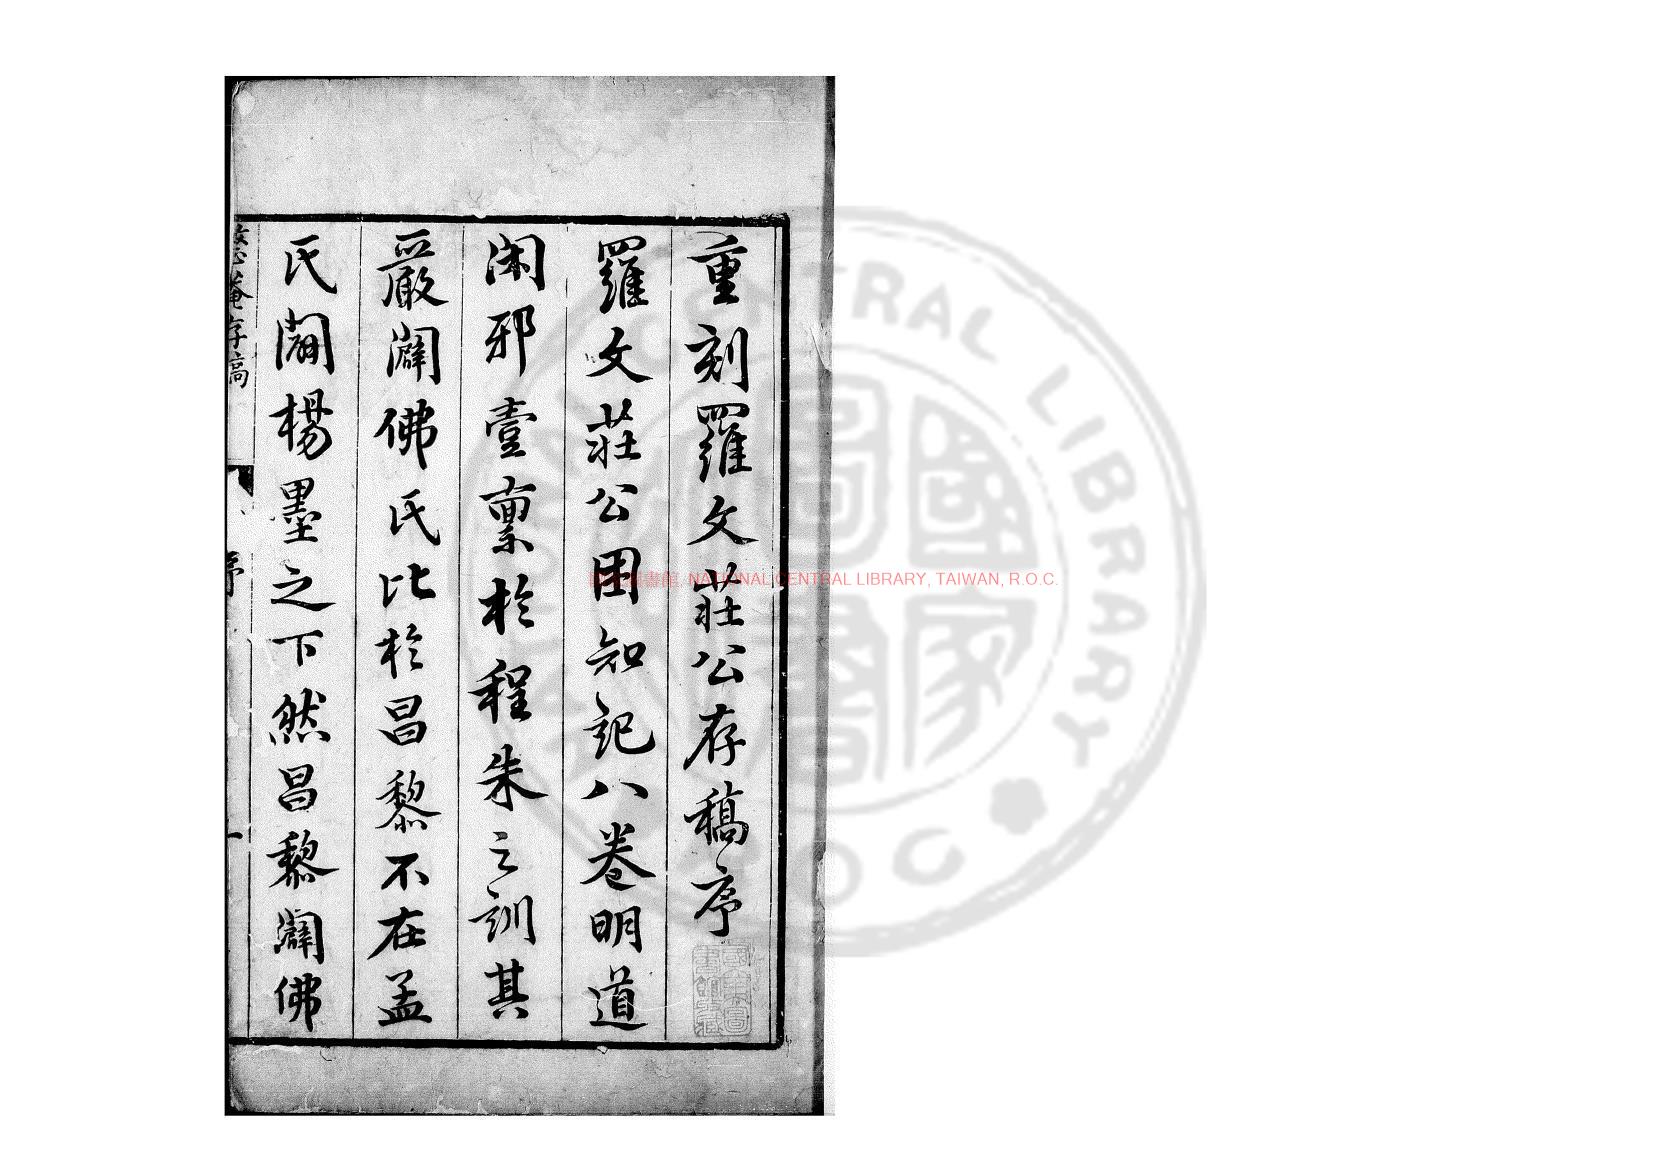 重刻羅文莊公存稿序
羅文莊公困知記八卷明道
閑邪壹稟於程朱之訓其
嚴闢佛氏比於昌黎不在孟
氏闢楊墨之下然昌黎闢佛
整菴存稿
序
一
國家圖書館, NATIONAL CENTRAL LIBRARY, TAIWAN, R.O.C.